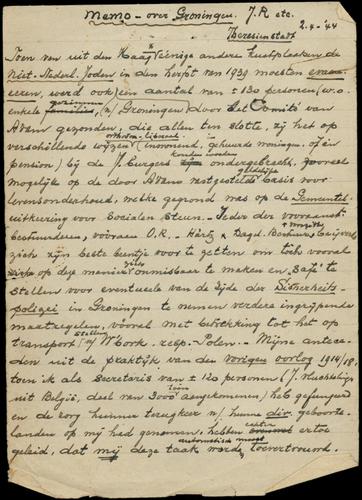 Memo - over Groningen. J.R etc.
Theresienstadt
2-4-'44
Toen van uit den Haag & eenige andere kustplaatsen de
niet-Nederl. Joden in den herfst van 1939 moesten
werd ook een aantal van ± 130 personen (w.o.
enkele gezinnen) n/ Groningen door het Comité van
A'dam gezonden, die allen ten slotte, zij het op
verschillende wijzen (
orthod. liberaal
gehuurde woningen, of in
pension) bij de J. Burgers konden worden ondergebracht, zooveel
mogelijk op de door A'dam vastgestelde geldelijke basis voor
levensonderhoud, welke gegrond was op de Gemeentel.
uitkeering voor Socialen Steun. - Ieder der vooraanst.
bestuurderen, vooraan O.R. - Hartz n Dagd. Bestuur
zich zijn beste beentje voor te zetten om toch vooral
op deze manier zich onmisbaar te maken en "safe" te
stellen voor eventueele van de zijde der Sicherheits-
polizei in Groningen te nemen verdere ingrijpende
maatregelen, vooral met betrekking tot het op
transport stellen n/ W'bork - resp. Polen. - Mijne antece-
den uit de praktijk van den vorigen oorlog 1914/18,
toen ik als Secretaris van ± 120 personen (J. vluchtelingen
uit België, deel van 3000 toen aangekomenen) heb gefungeerd
en de zorg hunner terugkeer n/ hunne div. geboorte-
landen op mij had genomen, hebben ertoe
geleid, dat mij deze taak automatisch werd toevertrouwd.